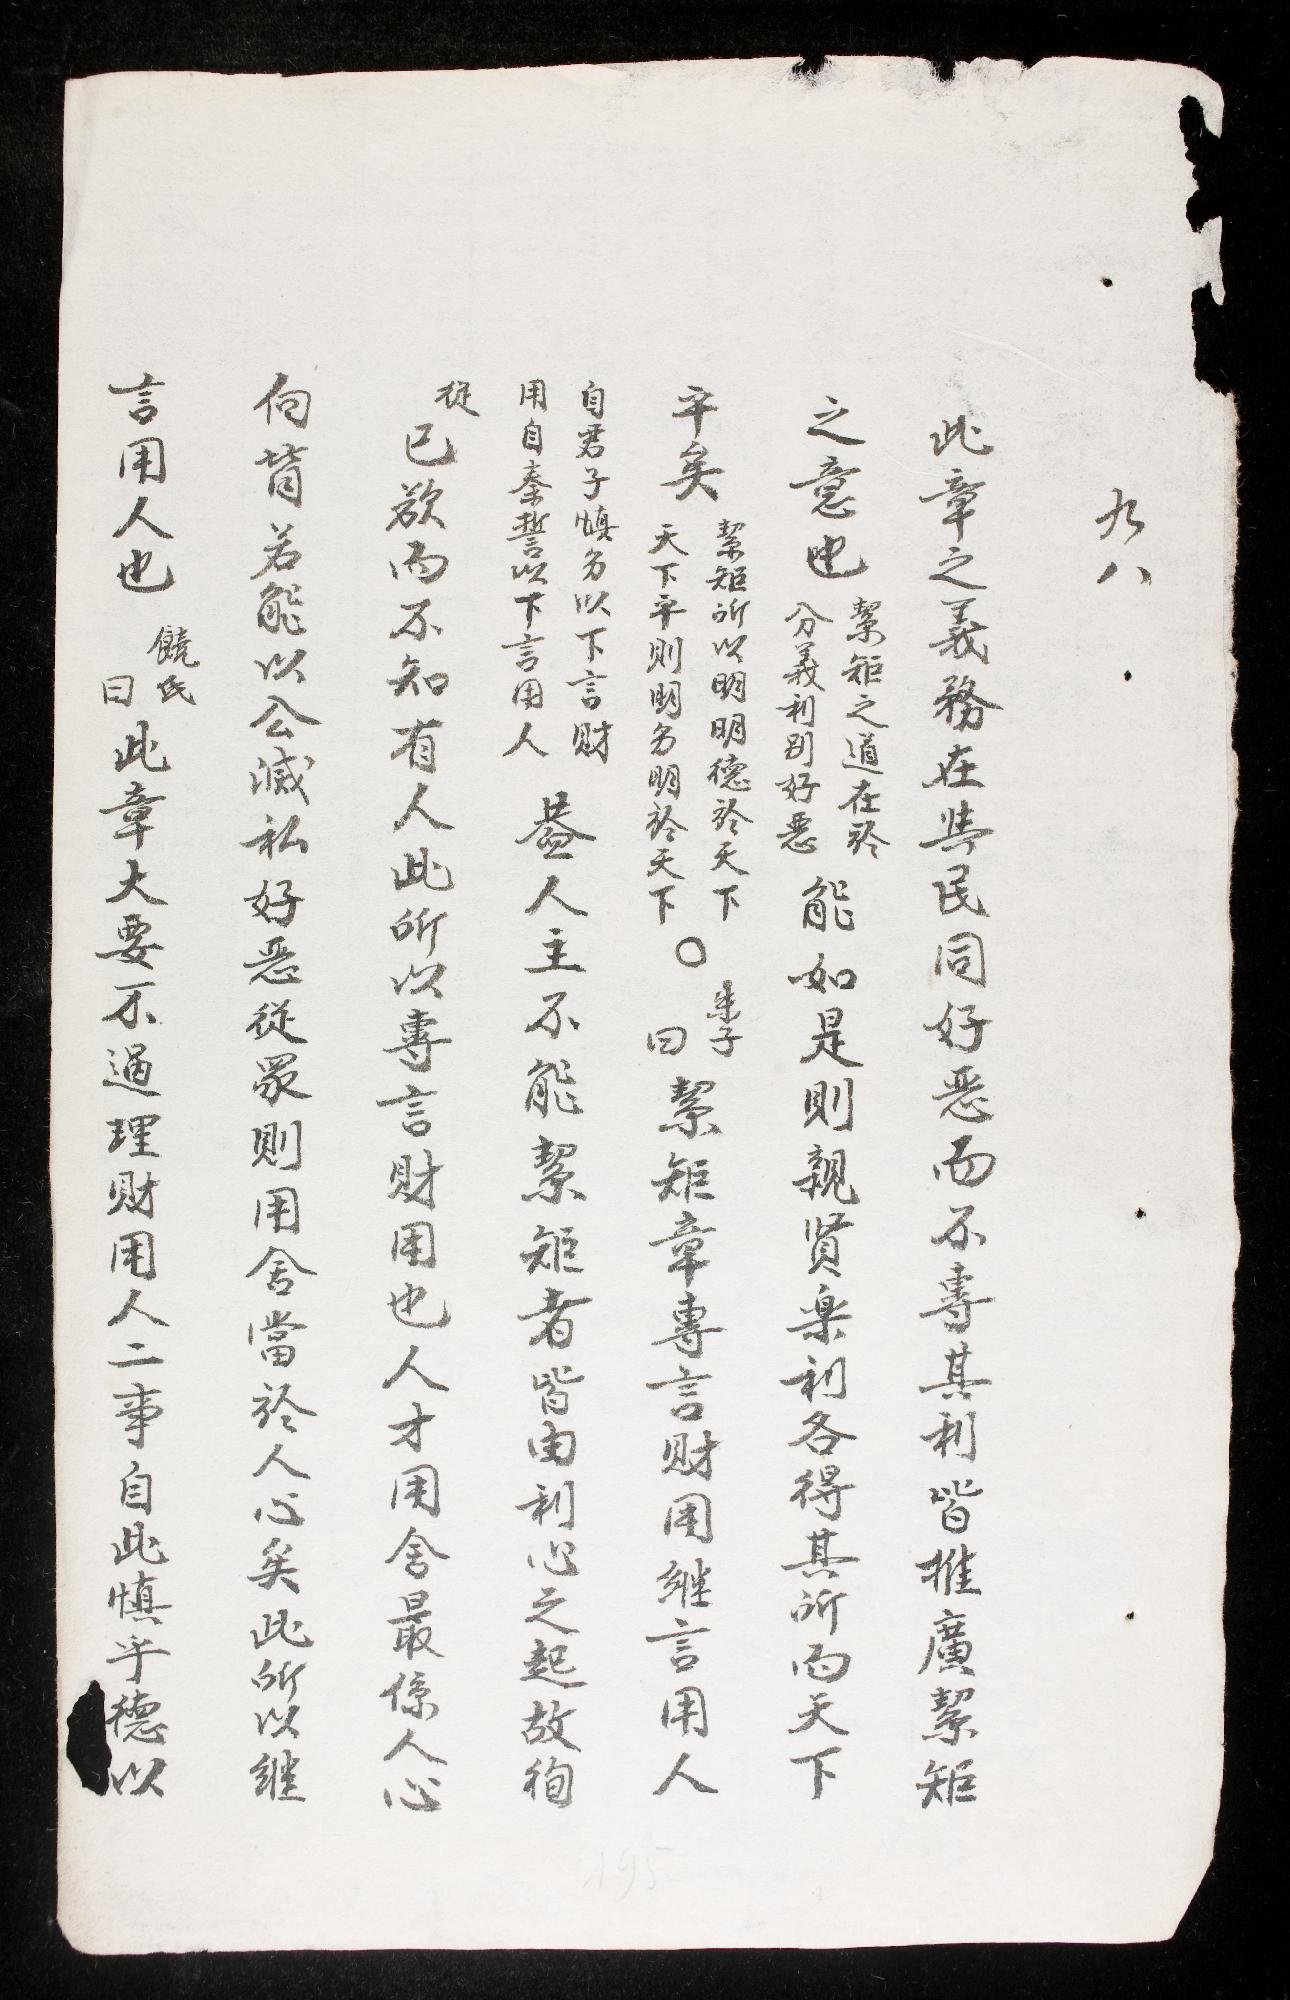 九八
此章之義務在與民同好惡而不專其利皆推廣絜矩
之意也
絜矩之道在於
分義利別好惡
能如是則親賢樂利各得其所而天下
平矣
絜矩所以明明德於天下
天下平則明为明於天下
〇
朱子
曰
絜矩章專言財用継言用人
自君子慎为以下言財
用自秦誓以下言用人
蓋人主不能絜矩者皆由利心之起故徇
從
已欲而不知有人此所以專言財用也人才用舍最係人心
向背若能以公滅私好惡從眾則用舍當於人心矣此所以継
言用人也
饒氏
曰
此章大要不過理財用人二事自此慎乎德以
195